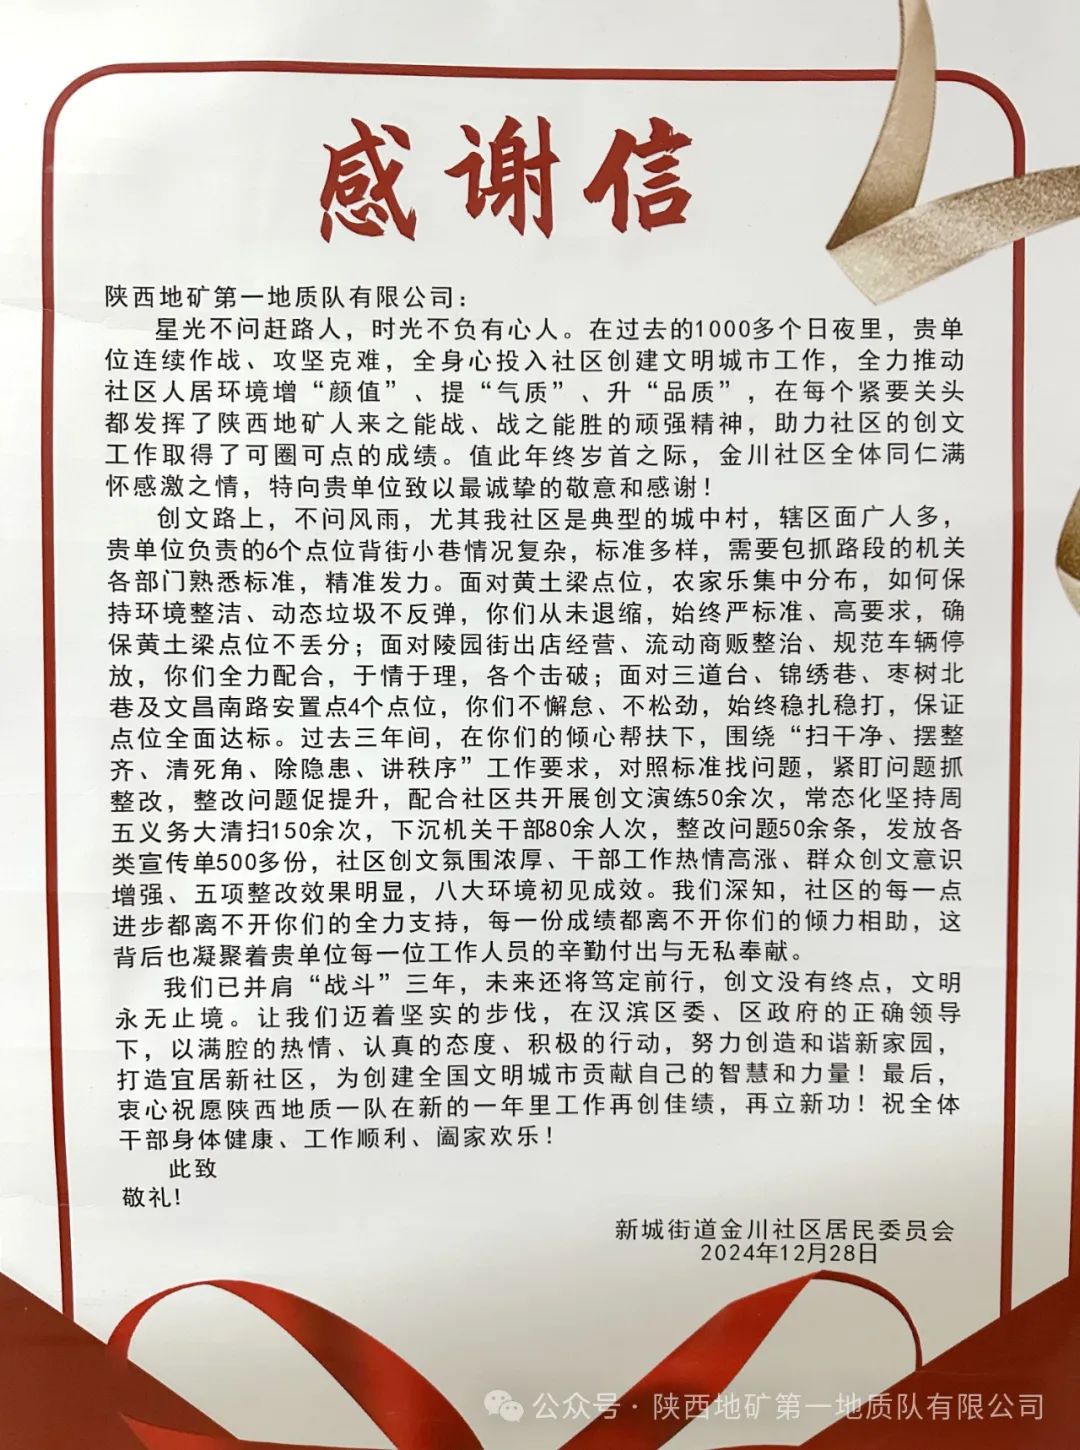 感谢信
陕西地矿第一地质队有限公司：
星光不问赶路人，时光不负有心人。在过去的1000多个日夜里，贵单
位连续作战、攻坚克难，全身心投入社区创建文明城市工作，全力推动
社区人居环境增“颜值”、提“气质”、升“品质”，在每个紧要关头
都发挥了陕西地矿人来之能战、战之能胜的顽强精神，助力社区的创文
工作取得了可圈可点的成绩。值此年终岁首之际，金川社区全体同仁满
怀感激之情，特向贵单位致以最诚挚的敬意和感谢！
创文路上，不问风雨，尤其我社区是典型的城中村，辖区面广人多，
贵单位负责的6个点位背街小巷情况复杂，标准多样，需要包抓路段的机关
各部门熟悉标准，精准发力。面对黄土梁点位，农家乐集中分布，如何保
持环境整洁、动态垃圾不反弹，你们从未退缩，始终严标准、高要求，确
保黄土梁点位不丢分；面对陵园街出店经营、流动商贩整治、规范车辆停
放，你们全力配合，于情于理，各个击破；面对三道台、锦绣巷、枣树北
巷及文昌南路安置点4个点位，你们不懈怠、不松劲，始终稳扎稳打，保证
点位全面达标。过去三年间，在你们的倾心帮扶下，围绕“扫干净、摆整
齐、清死角、除隐患、讲秩序”工作要求，对照标准找问题，紧盯问题抓
整改，整改问题促提升，配合社区共开展创文演练50余次，常态化坚持周
五义务大清扫150余次，下沉机关干部80余人次，整改问题50余条，发放各
类宣传单500多份，社区创文氛围浓厚、干部工作热情高涨、群众创文意识
增强、五项整改效果明显，八大环境初见成效。我们深知，社区的每一点
进步都离不开你们的全力支持，每一份成绩都离不开你们的倾力相助，这
背后也凝聚着贵单位每一位工作人员的辛勤付出与无私奉献。
我们已并肩“战斗”三年，未来还将笃定前行，创文没有终点，文明
永无止境。让我们迈着坚实的步伐，在汉滨区委、区政府的正确领导
下，以满腔的热情、认真的态度、积极的行动，努力创造和谐新家园，
打造宜居新社区，为创建全国文明城市贡献自己的智慧和力量！最后，
衷心祝愿陕西地质一队在新的一年里工作再创佳绩，再立新功！祝全体
干部身体健康、工作顺利、阖家欢乐！
此致
敬礼！
新城街道金川社区居民委员会
2024年12月28日
公众号·陕西地矿第一地质队有限公司